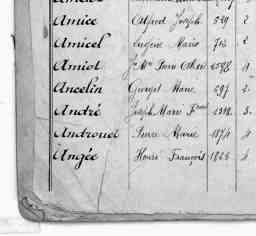 Amice Alfred Joseph 529 2
Amicel Eugène Marie 703 2
Amiot Jn Mie Pierre
Ancelin Georges Marie 297 2.
André Joseph Marie Fcois 1318. 3.
Androuet Pierre Marie 1874 4
Angée Henri François 1826 4